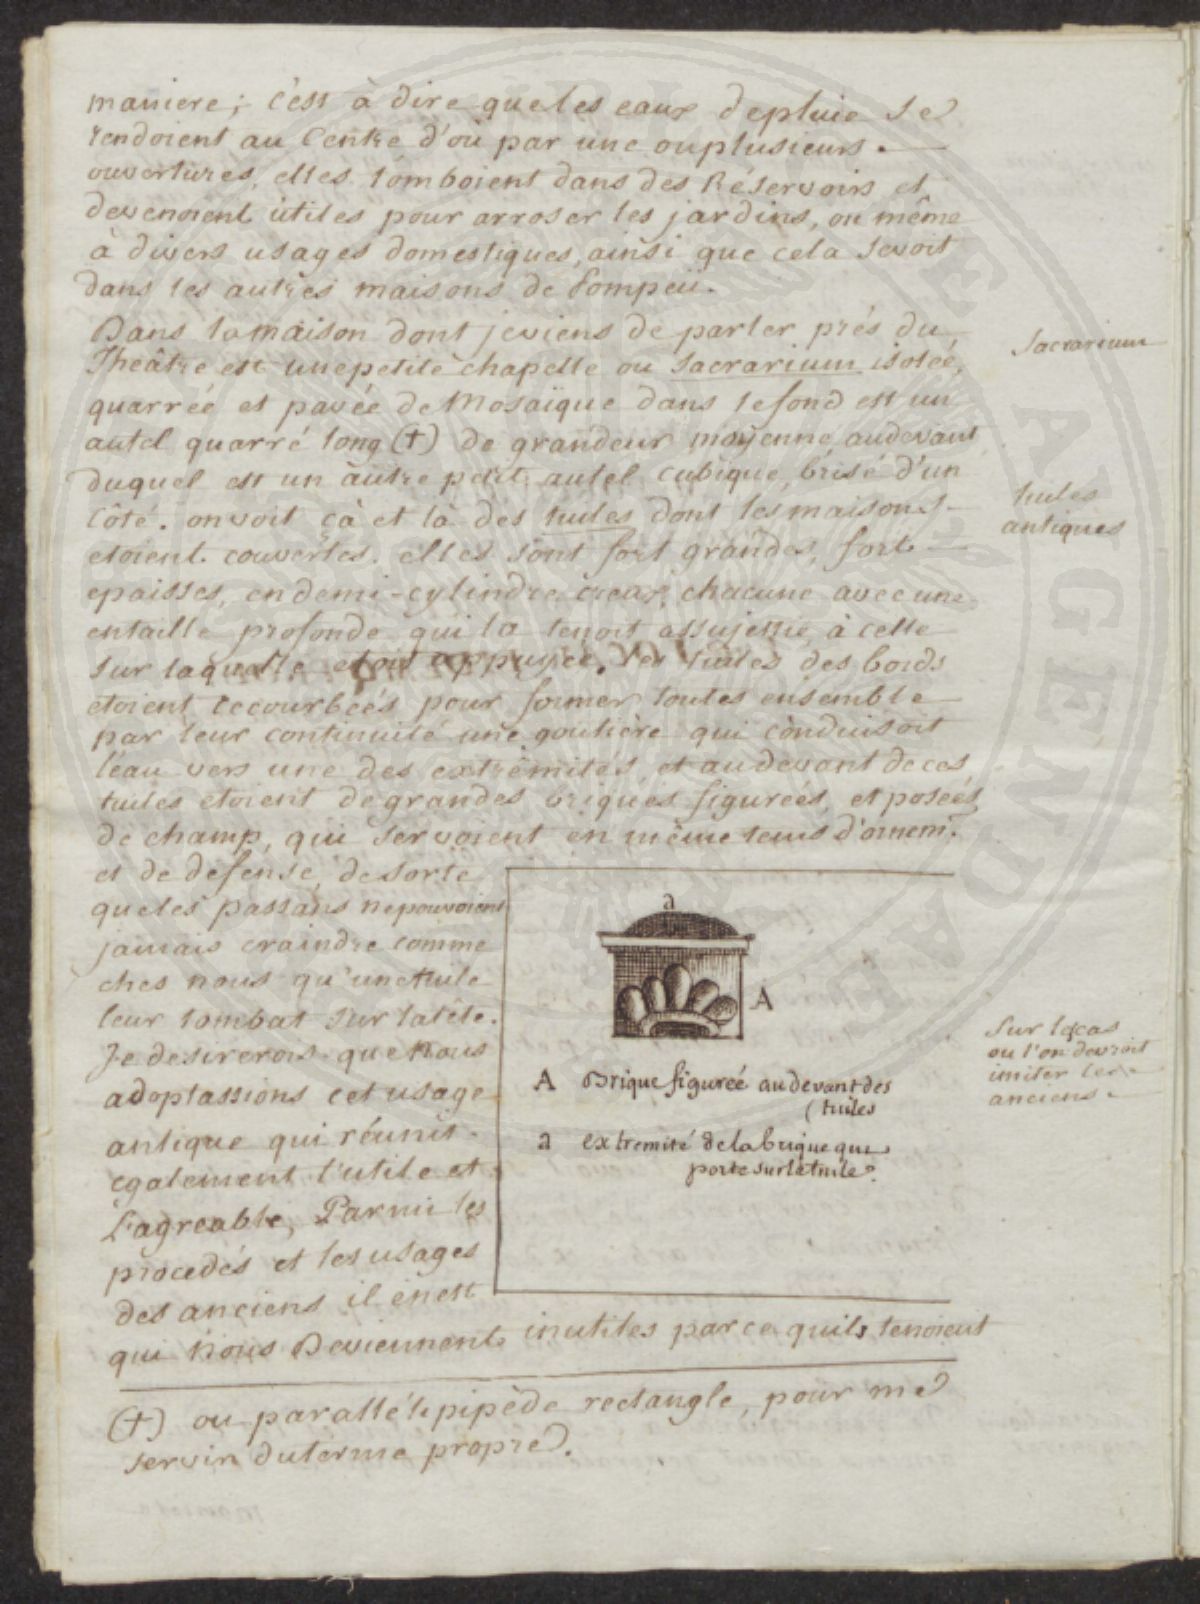 maniere; c'est à dire que les eaux de pluie se
rendoient au Centre d'où par une ou plusieurs
ouvertures, elles tomboient dans des Réservoirs et
devenoient utiles pour arroser les jardins, ou même
à divers usages domestiques, ainsi que cela se voit
dans les autres maisons de Pompeii.
Dans la maison dont je viens de parler prés du
Theâtre est une petite chapelle ou Sacrarium isoléé,
quarréé et pavéé de Mosaïque dans le fond est un
autel quarré long (†) de grandeur moyenne, au devant
duquel est un autre petit autel cubique, brisé d'un
côté. on voit çà et là des tuiles dont les maisons
etoient couvertes. elles sont fort grandes, fort
epaisses, en demi-cylindre creux, chacune avec une
entaille profonde qui la tenoit assujettie à celle
sur laquelle etoit appuyée. les tuiles des bords
etoient recourbéés pour former toutes ensemble
par leur continuité une goutière qui conduisoit
l'eau vers une des extrêmités, et au devant de ces
tuiles etoient de grandes briques figuréés, et poséés
de champ, qui servoient en même tems d'ornem.t
et de défense, de sorte
que les passans ne pouvoient
jamais craindre comme
ches nous qu'une tuile
leur tombat sur la tête.
Je desirerois que nous
adoptassions cet usage
antique qui réunit
egalement l'utile et
L'agreable, Parmi les
procedés et les usages
des anciens il en est
qui nous Deviennent inutiles parce quils tenoient
(†) ou parallélipipède rectangle, pour me
servir du terme propre.
Sacrarium
tuiles
antiques
a
A
A Brique figuréé au devant des
(tuiles
a extremité de la brique qui
porte sur la tuile.
Sur le cas
ou l'on devroit
imiter les
anciens.